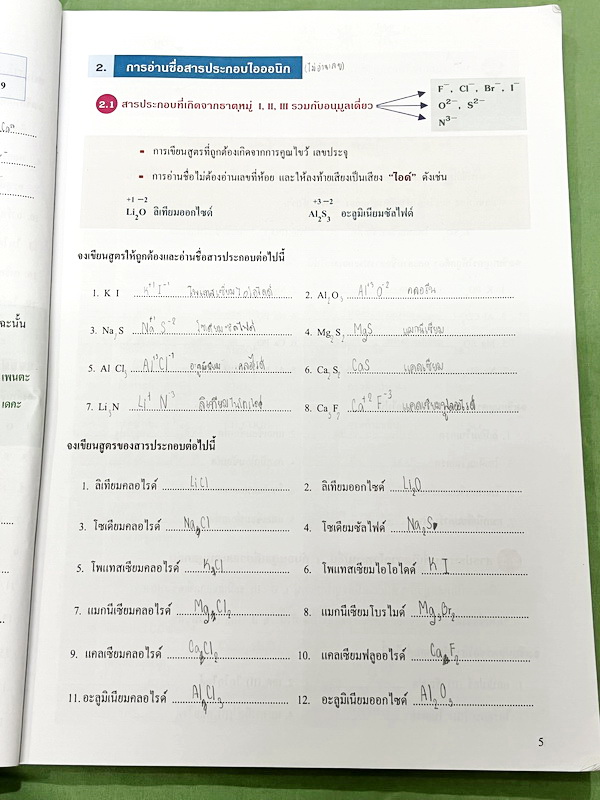 9
2. การอ่านชื่อสารประกอบไอออนิก (ไม่อ่านเลข)
2.1 สารประกอบที่เกิดจากธาตุหมู่ I, II, III รวมกับอนุมูลเดี่ยว
F⁻, Cl⁻, Br⁻, I⁻
O²⁻, S²⁻
N³⁻
- การเขียนสูตรที่ถูกต้องเกิดจากการคูณไขว้ เลขประจุ
- การอ่านชื่อไม่ต้องอ่านเลขที่ห้อย และให้ลงท้ายเสียงเป็นเสียง "ไอด์" ดังเช่น
+1 −2 +3 −2
Li₂O ลิเทียมออกไซด์ Al₂S₃ อะลูมิเนียมซัลไฟด์
จงเขียนสูตรให้ถูกต้องและอ่านชื่อสารประกอบต่อไปนี้
1. K I K⁺¹ I⁻¹ 2. Al₂O₃ Al⁺³ O⁻²
3. Na₂S Na⁺¹ S⁻² 4. Mg₂S₂ MgS แมกนีเซียม
5. Al Cl₃ Al⁺³Cl⁻¹ 6. Ca₂S₂ CaS แคลเซียม
7. Li₃N Li⁺ N⁻³ 8. Ca₃F₂ Ca⁺² F⁻³ แคลเซียมฟลูออไรด์
จงเขียนสูตรของสารประกอบต่อไปนี้
1. ลิเทียมคลอไรด์ LiCl 2. ลิเทียมออกไซด์ Li₂O
3. โซเดียมคลอไรด์ Na Cl 4. โซเดียมซัลไฟด์ Na₂S
5. โพแทสเซียมคลอไรด์ K Cl 6. โพแทสเซียมไอโอไดด์ K I
7. แมกนีเซียมคลอไรด์ Mg Cl₂ 8. แมกนีเซียมโบรไมด์ Mg Br₂
9. แคลเซียมคลอไรด์ Ca Cl₂ 10. แคลเซียมฟลูออไรด์ Ca F₂
11. อะลูมิเนียมคลอไรด์ Al Cl₃ 12. อะลูมิเนียมออกไซด์ Al₂O₃
ฉะนั้น
เพนตะ
เดคะ
5